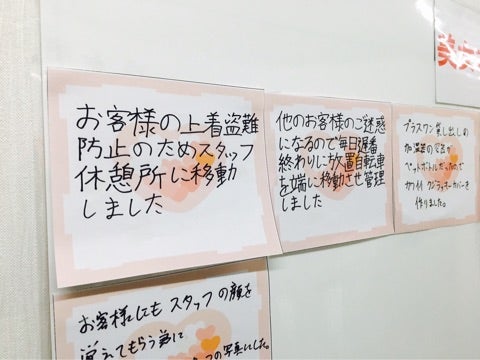 お客様の上着盗難
防止のためスタッフ
休憩所に移動
しました
他のお客様のご迷惑
になるので毎日遅番
終わりに放置自転車
を端に移動させ管理
しました
プラスワン貸し出しの
加湿器の容器が
ペットボトルだったので
カワイイ
カバーを
作りました。
お客様にもスタッフの顔を
覚えてもらう為に
の写真にした。